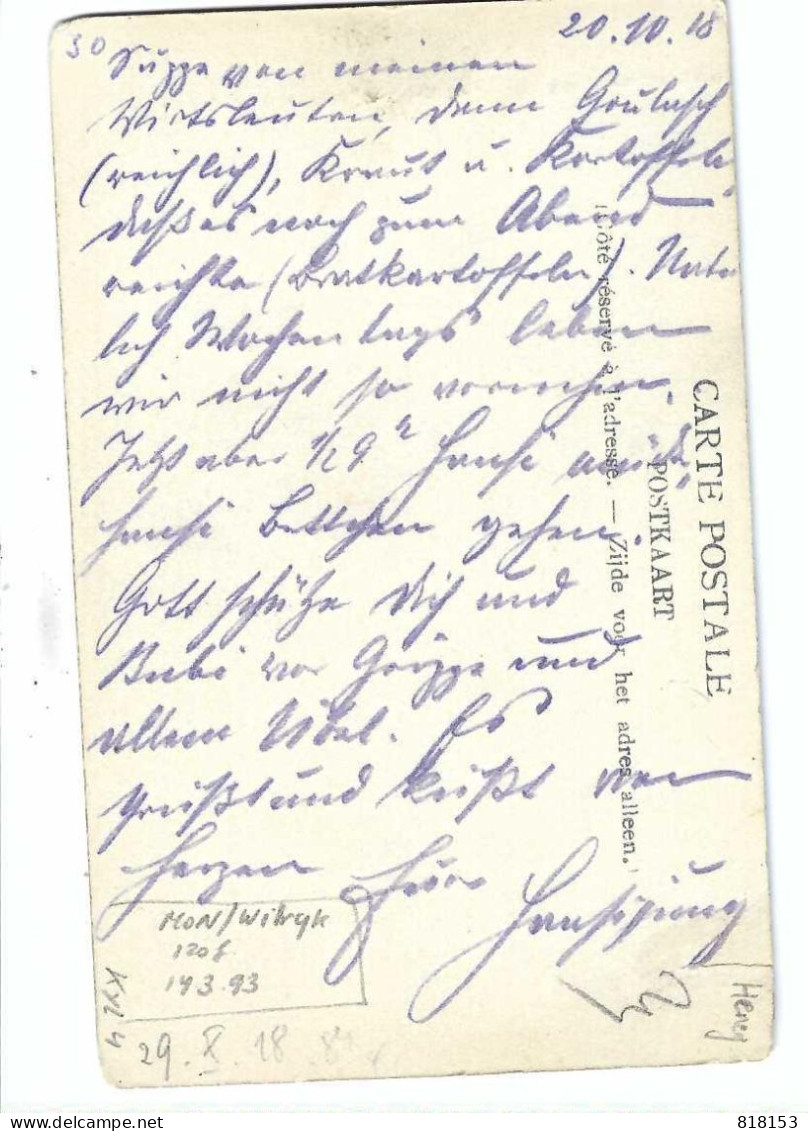 30 20.10.18
Suppe von meinen
Wirtsleuten, dann Goulasch
(reichlich), Kraut u. Kartoffeln,
daß es noch zum Abend
reichte (Bratkartoffeln). Natür
lich Wochentags leben
wir nicht so vornehm.
Jetzt aber 1/2 9 h Hansi müde,
Hansi Bettchen gehen.
Gott schütze Dich und
Bubi vor Grippe und
allem Übel. Es
grüßt und küßt von
Herzen Euer
Hansijung
CARTE POSTALE
POSTKAART
(Côté réservé à l'adresse. — Zijde voor het adres alleen.)
MON/Wilryk
120f
14 3.93
29. X. 18
818153